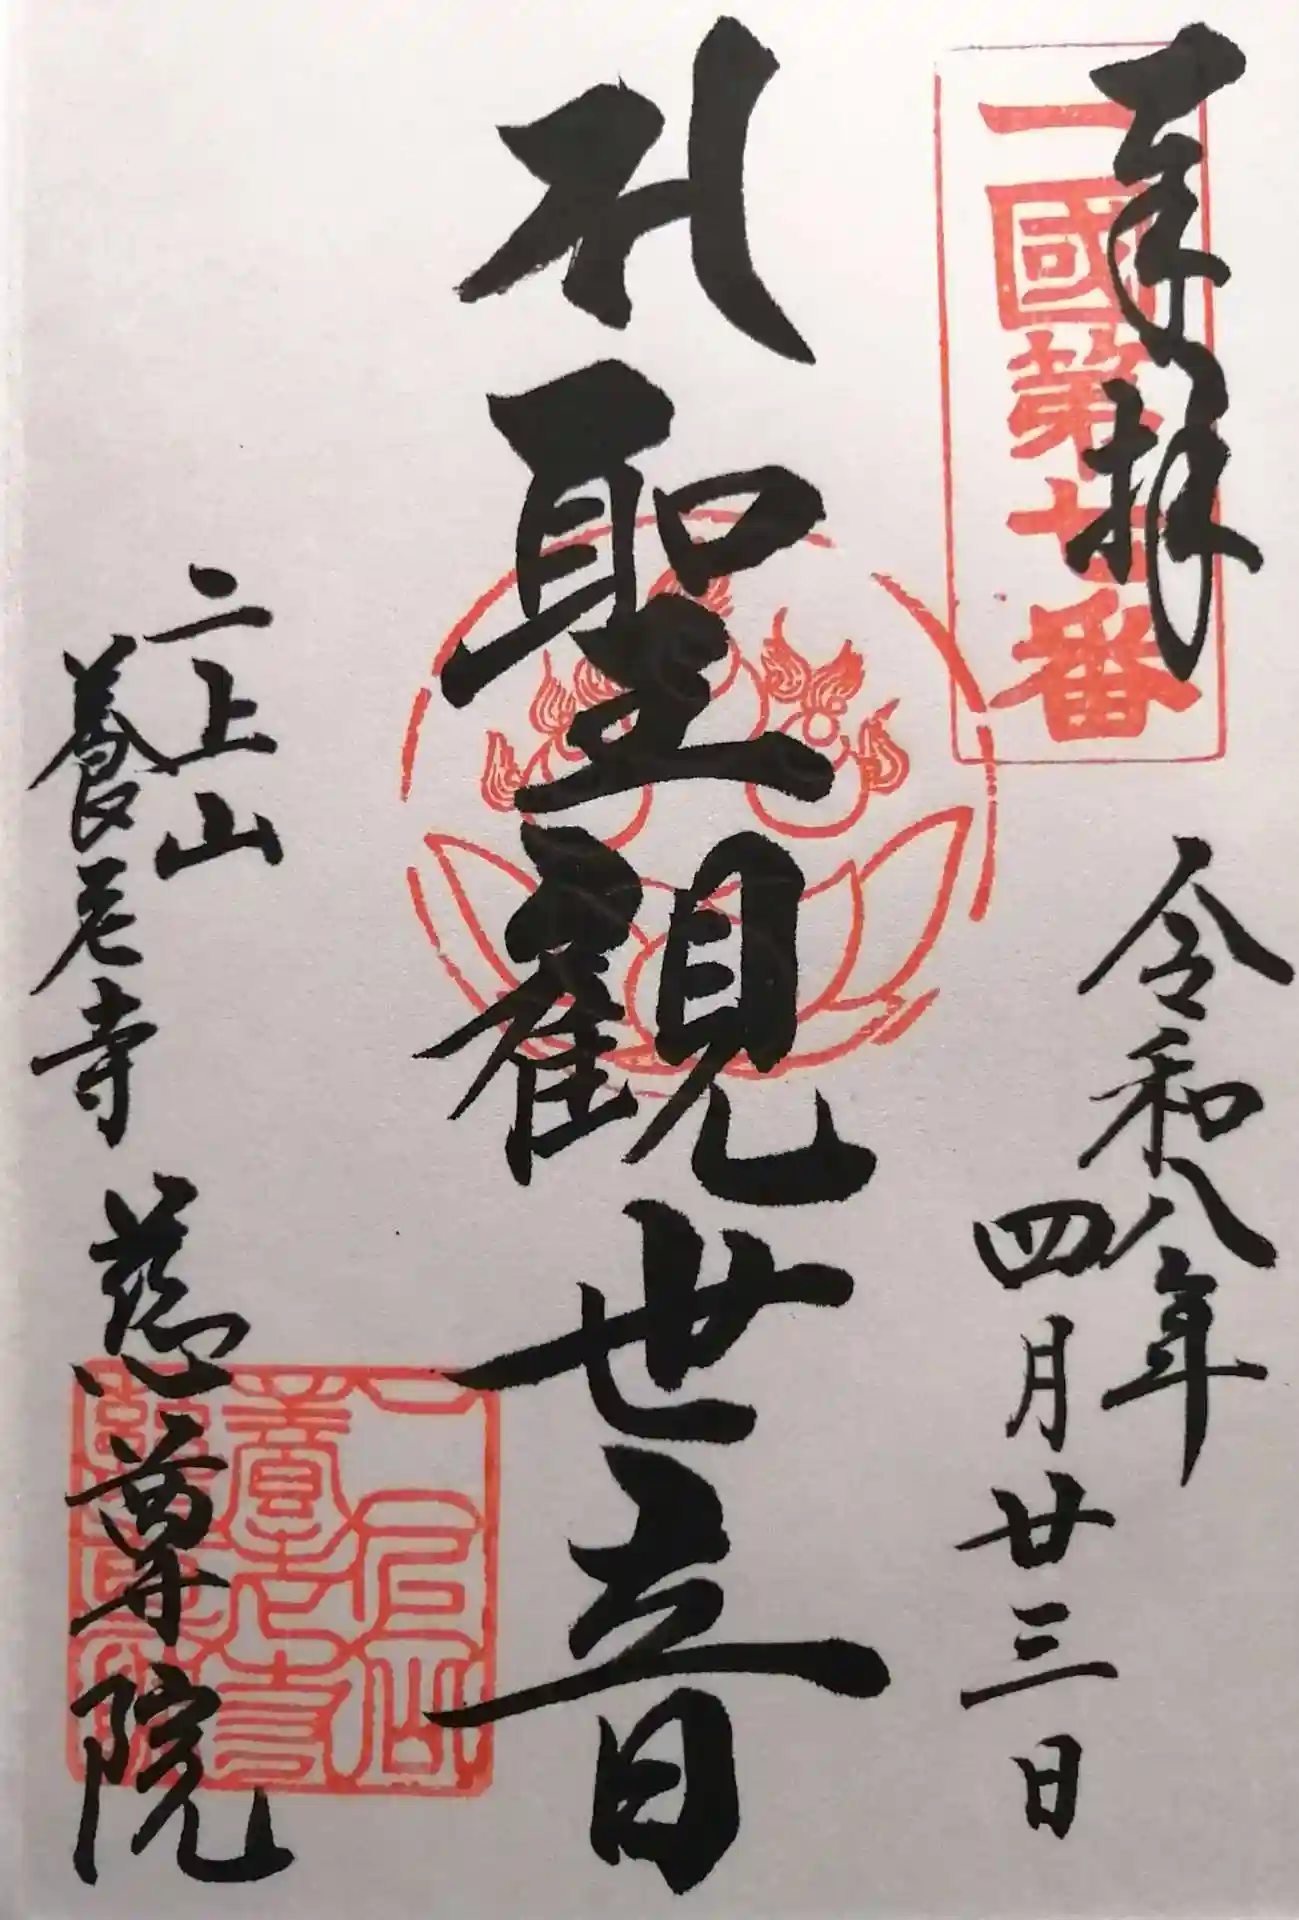 奉拝
一國第廿番
令和八年
四月廿三日
聖観世音
二上山
養老寺
慈尊院